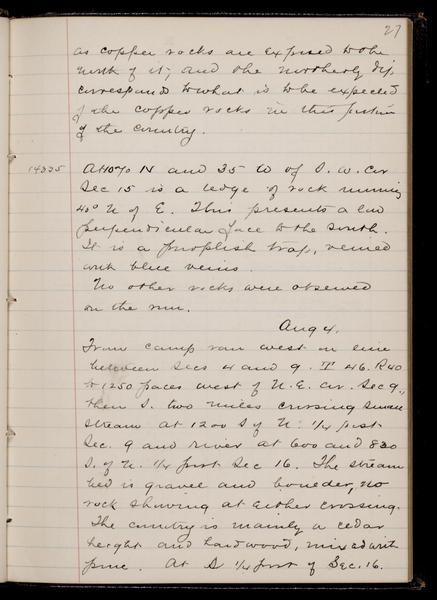 27
as copper rocks are exposed to the
north of it, and the northerly dip
corresponds to what is to be expected
of the copper rocks in this portion
of the country.
14335
At 1070 N and 35 W of S. W. Cor
Sec 15 is a ledge of rock running
40° N of E. This presents a low
perpendicular face to the south.
It is a purplish trap, veined
with blue veins.
No other rocks were observed
on the run.
Aug 4.
From camp ran west on line
between Secs 4 and 9. T 46. R 40
to 1250 paces west of N. E. Cor. Sec 9.,
then S. two miles crossing
stream at 1200 S of N. 1/4 post
Sec. 9 and river at 600 and 830
S. of N. 1/4 post Sec 16. The stream
bed is gravel and boulder, no
rock showing at either crossing.
The country is mainly a cedar
height and hardwood, mixed with
pine. At S 1/4 post of Sec. 16.